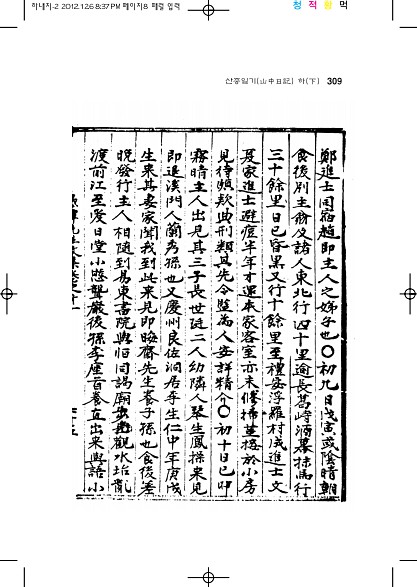 하내지-2 2012.12.6 8:37 PM 페이지8 페렁 입력
청 적 황 먹
산중일기(山中日記) 하(下) 309
鄭進士同宿趙卽主人之姊子也〇初九日戊寅或陰晴朝
食後別主翁及諸人東北行四十里逾長葛峙酒幕抹馬行
三十餘里日已昏黑又行十餘里至禮安浮羅村咸進士文
夏家進士避痘半年才還家客室亦未修掃並接於小房
見待頗欵曲刑類其先令監爲人安詳精介〇初十日己卯
霧晴主人出見其三子長世廷二人幼隣人琴生鳳採來見
卽退溪門人蘭秀孫也又慶州良佐洞居李生仁中年庚戌
生來其妻家聞我到此來見卽晦齋先生養子孫也食後差
晩發行主人相隨到易東書院與怕同謁廟 觀水坮亂
渡前江至愛日堂小憩聾巖後孫李座首養直出來與語小